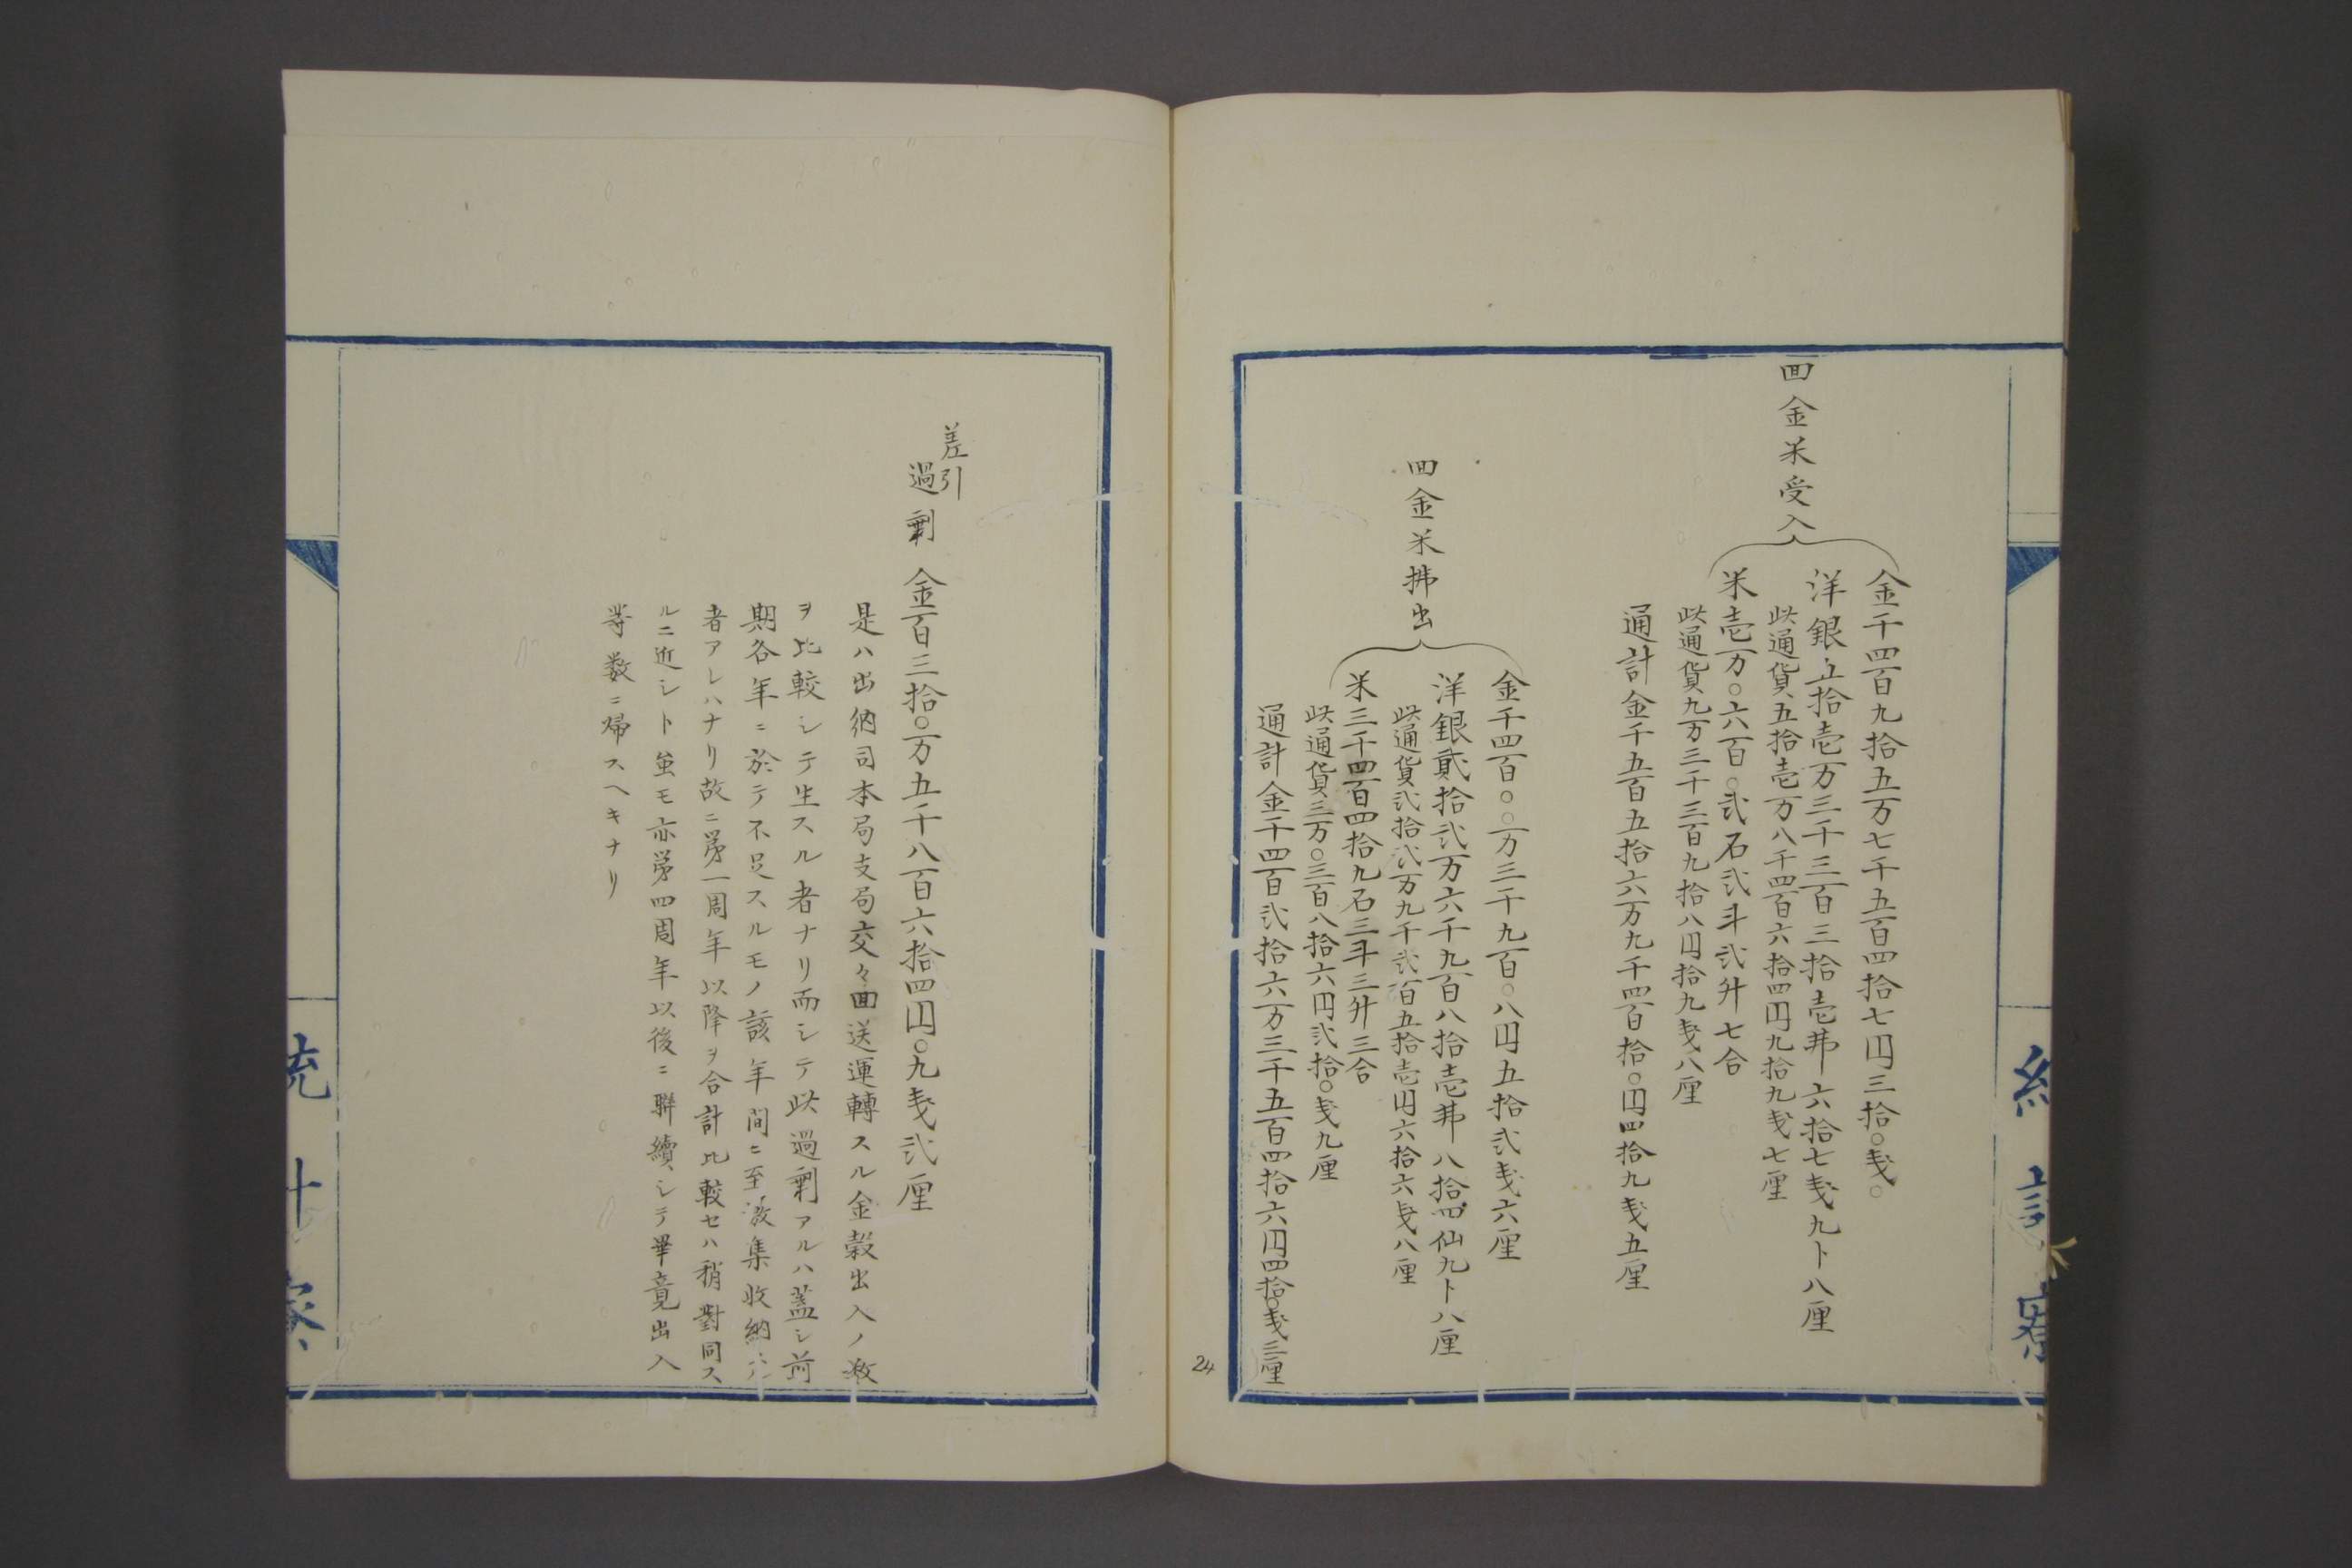 回金米受入
金千四百九拾五万七千五百四拾七円三拾〇銭〇
洋銀五拾壱万三千三百三拾壱弗六拾七銭九卜八厘
此通貨五拾壱万八千四百六拾四円九拾九銭七厘
米壱万〇六百〇弐石弐斗弐升七合
此通貨九万三千三百九拾八円拾九銭八厘
通計金千五百五拾六万九千四百拾〇円四拾九銭五厘
回金米拂出
金千四百〇〇万三千九百〇八円五拾弐銭六厘
洋銀貳拾弐万六千九百八拾壱弗八拾四仙九卜八厘
此通貨弐拾弐万九千弐百五拾壱円六拾六銭八厘
米三千四百四拾九石三斗三升三合
此通貨三万〇三百八拾六円弐拾〇銭九厘
通計金千四百弐拾六万三千五百四拾六円四拾〇銭三厘
24
差引
過剰 金百三拾〇万五千八百六拾四円〇九銭弐厘
是ハ出納司本局支局交々回送運轉スル金穀出入ノ数
ヲ比較シテ生スル者ナリ而シテ此過剰アルハ蓋シ前
期各年ニ於テ不足スルモノ該年間ニ至湊集收納
者アレハナリ故ニ第一周年以降ヲ合計比較セハ稍對同ス
ルニ近シト虽モ亦第四周年以後ニ聯續シテ畢竟出入
等数ニ帰スヘキナリ
統計寮